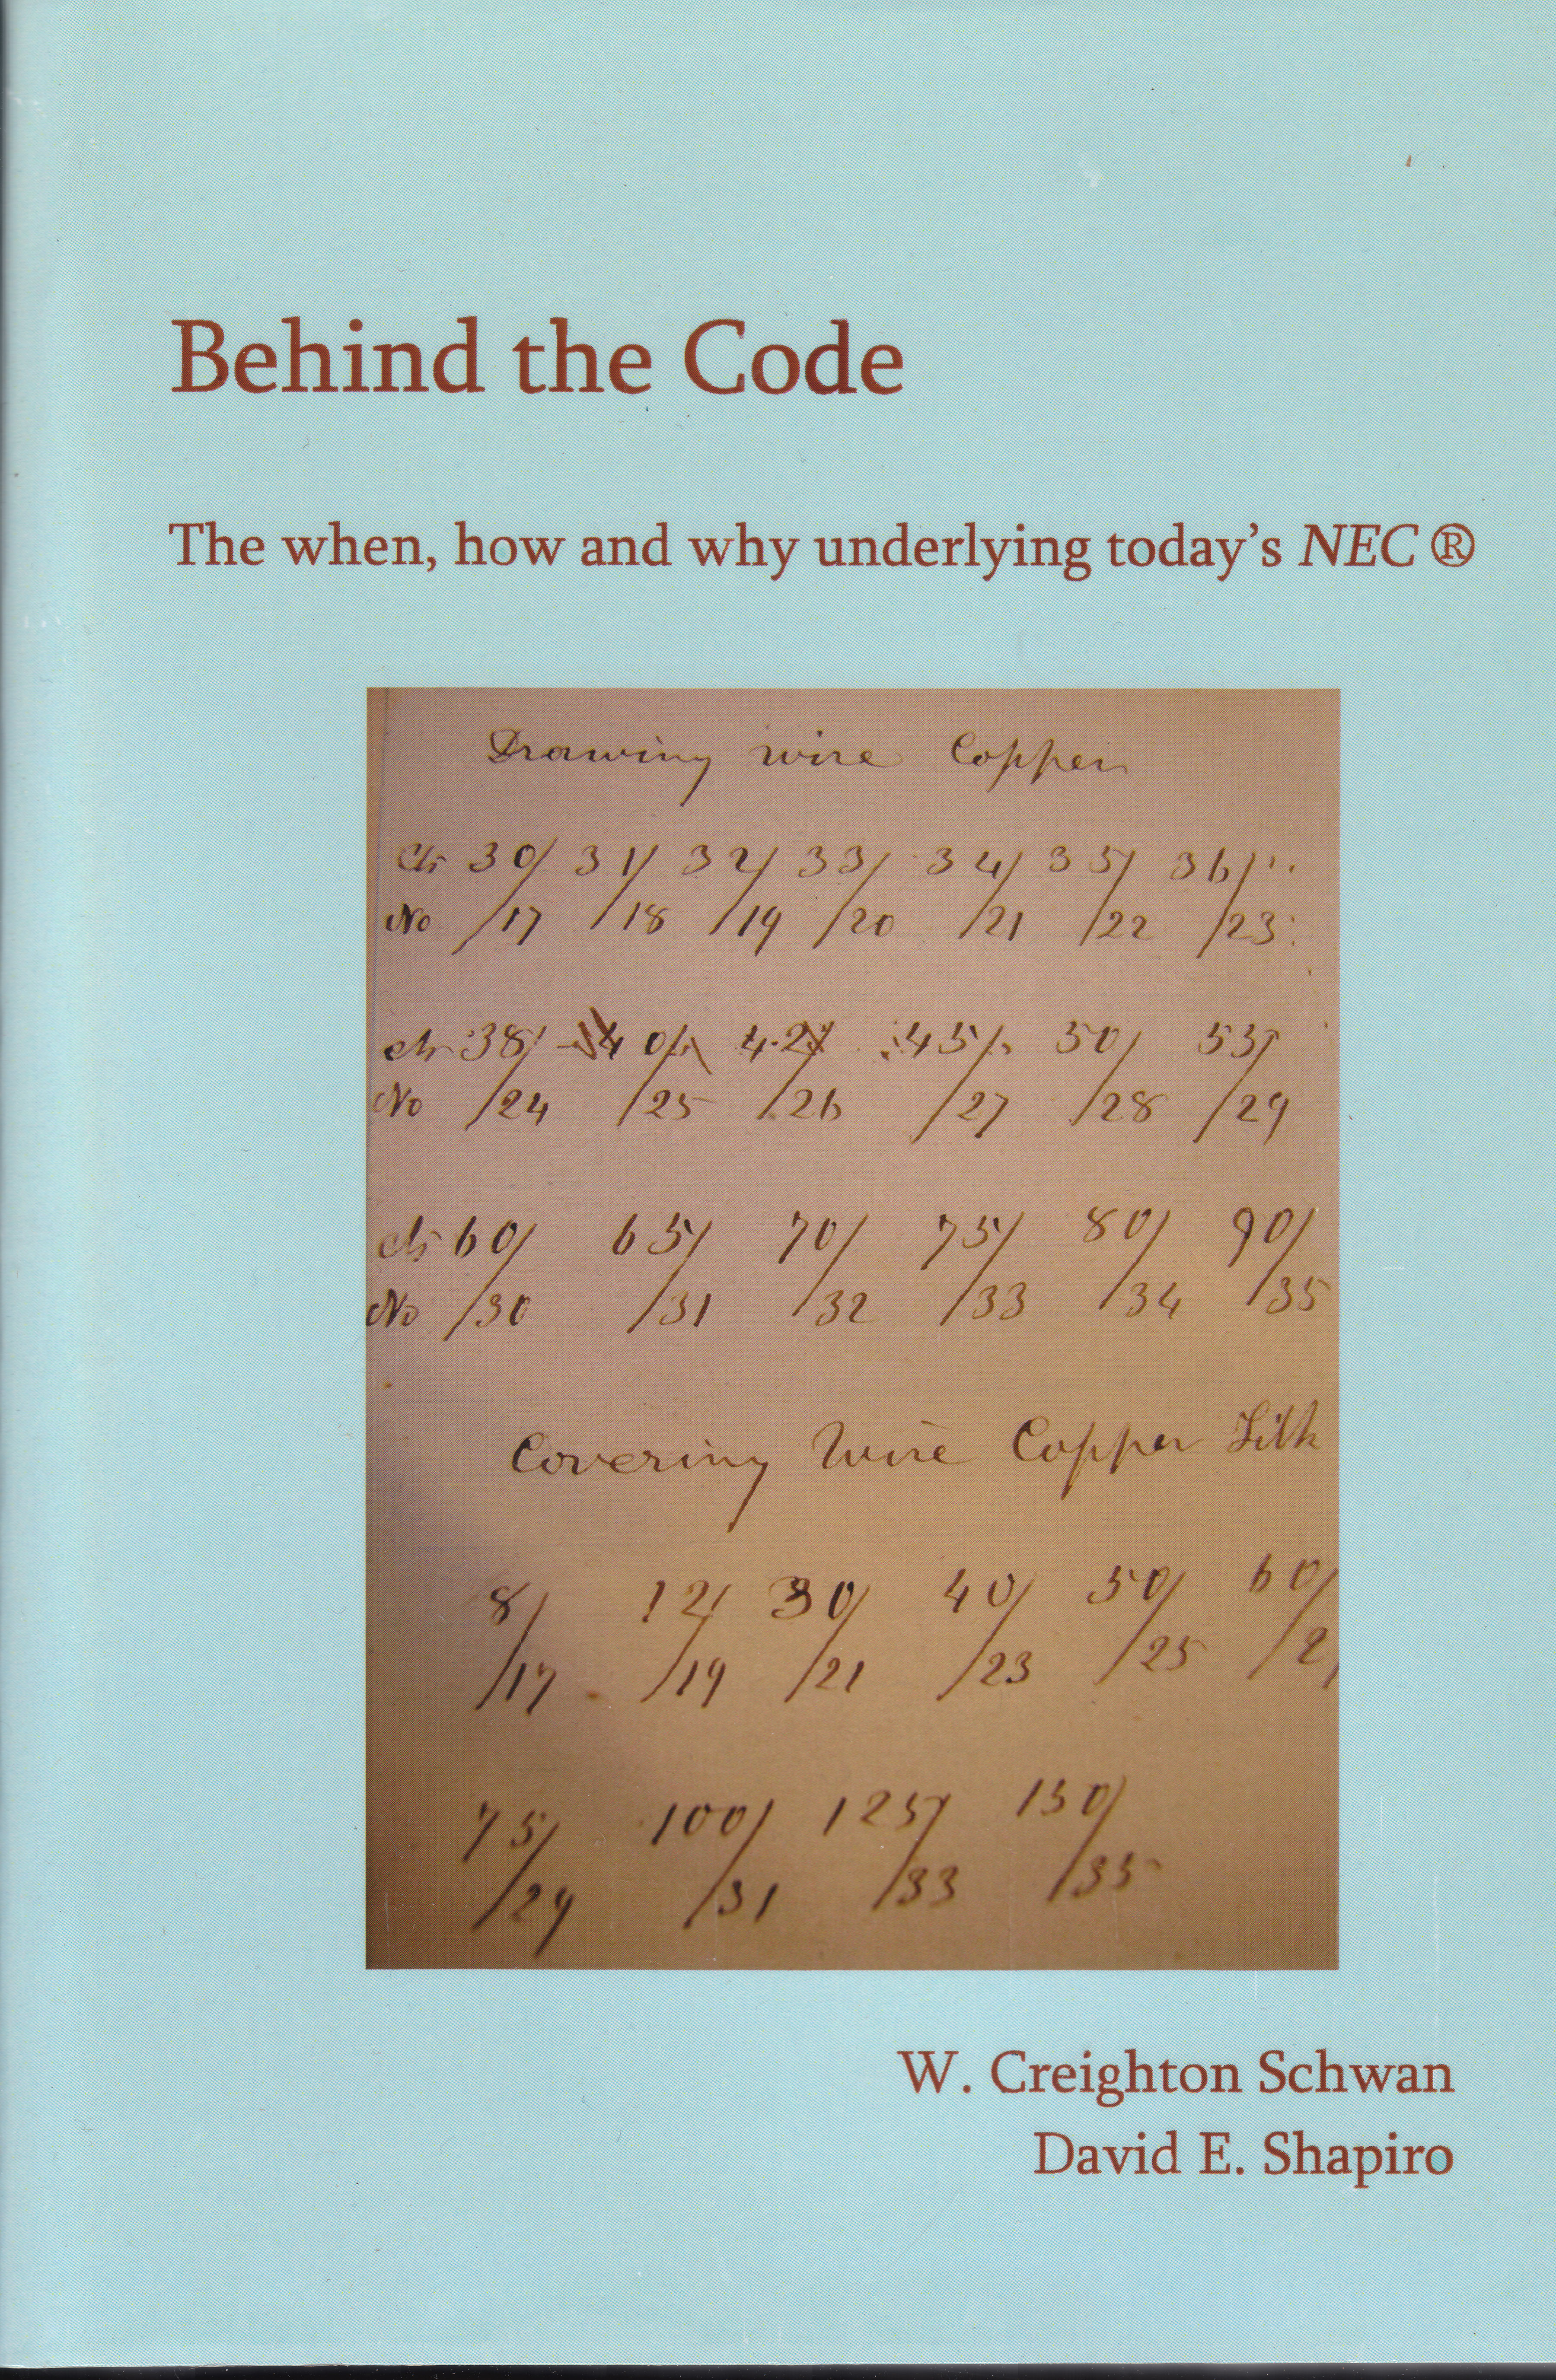 Behind the Code
The when, how and why underlying today's NEC ®
Drawing wire Copper
cts 30/ 31/ 32/ 33/ 34/ 35/ 36/
No /17 /18 /19 /20 /21 /22 /23
cts 38/ 40/ 42/ 45/ 50/ 53/
No /24 /25 /26 /27 /28 /29
cts 60/ 65/ 70/ 75/ 80/ 90/
No /30 /31 /32 /33 /34 /35
Covering Wire Copper Silk
8/ 12/ 30/ 40/ 50/ 60/
/17 /19 /21 /23 /25
75/ 100/ 125/ 150/
/29 /31 /33 /35
W. Creighton Schwan
David E. Shapiro